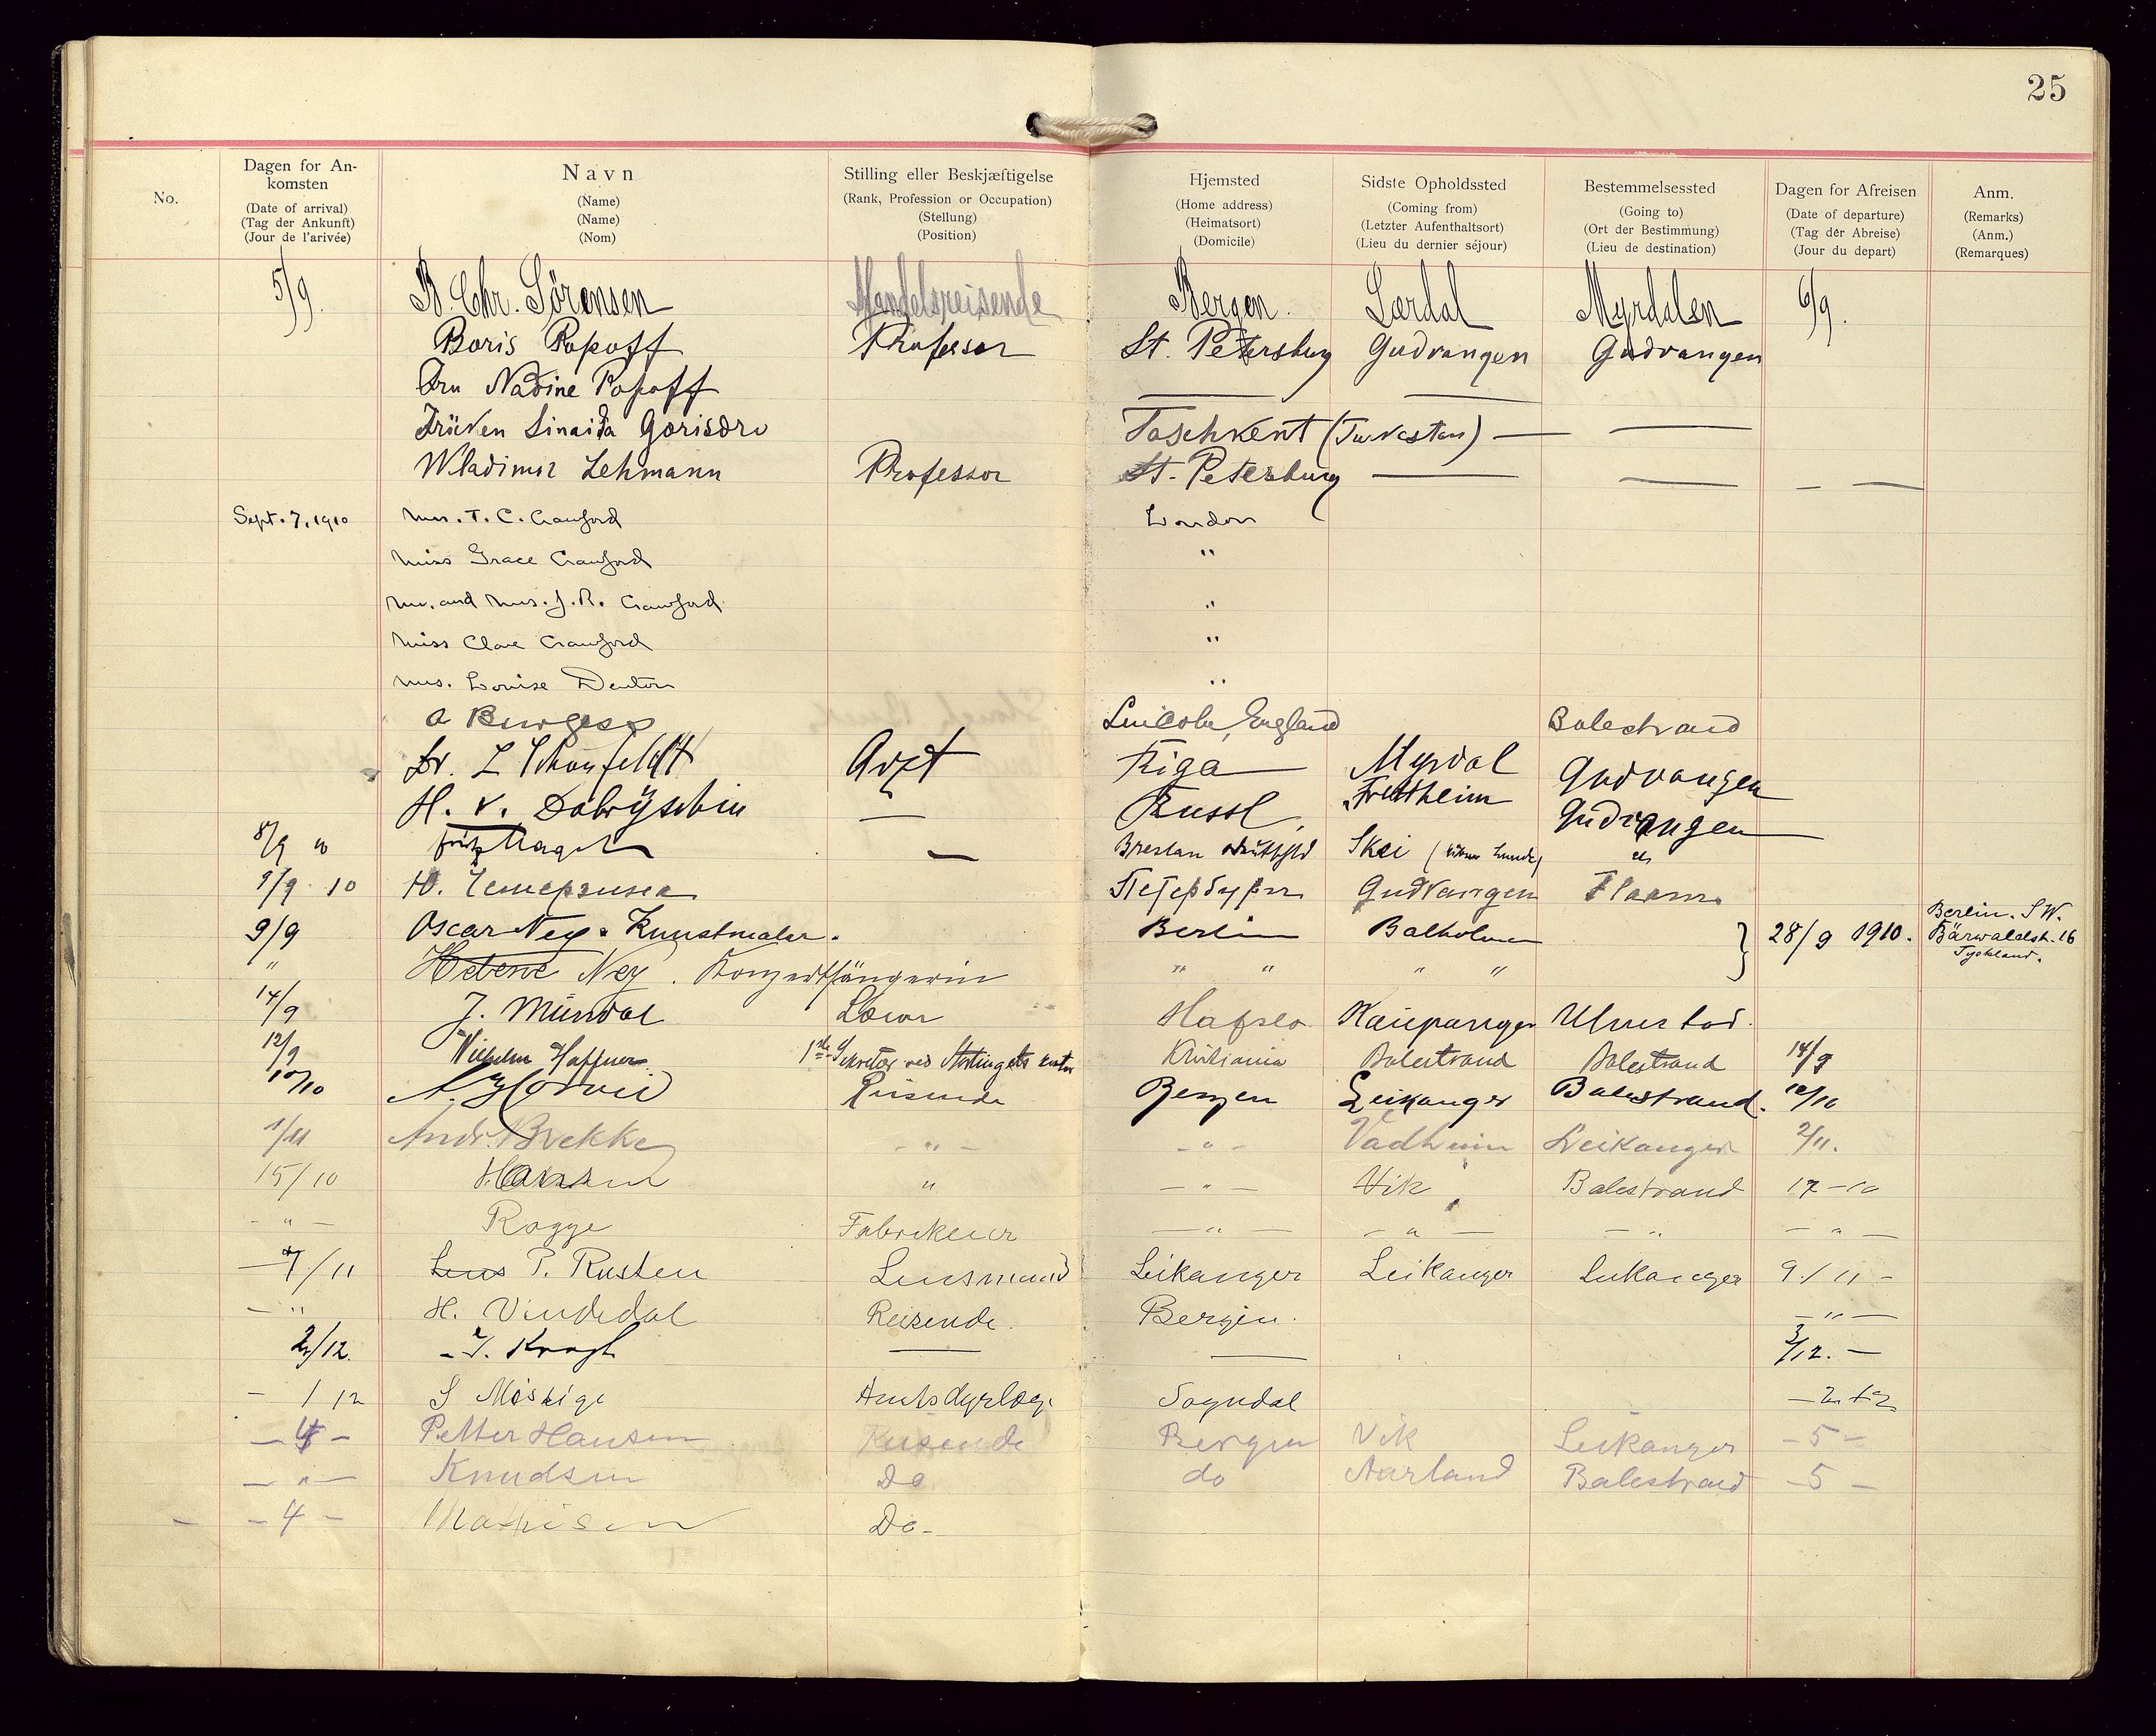 25
No.
Dagen for An-
komsten
(Date of arrival)
(Tag der Ankunft)
(Jour de l'arivée)
Navn
(Name)
(Name)
(Nom)
Stilling eller Beskjæftigelse
(Rank, Profession or Occupation)
(Stellung)
(Position)
Hjemsted
(Home address)
(Heimatsort)
(Domicile)
Sidste Opholdssted
(Coming from)
(Letzter Aufenthaltsort)
(Lieu du dernier séjour)
Bestemmelsessted
(Going to)
(Ort der Bestimmung)
(Lieu de destination)
Dagen for Afreisen
(Date of departure)
(Tag der Abreise)
(Jour du depart)
Anm.
(Remarks)
(Anm.)
(Remarques)
5/9. B. Chr. Sörensen Handelsreisende Bergen. Lærdal Myrdalen 6/9.
Boris Popoff Professor St. Petersburg Gudvangen Gudvangen
Fru Nadine Popoff — —
Fröken Sinaida Gorisdro Taschkent (Turkestan) — —
Wladimir Lehmann Professor St. Petersburg — — — —
Sept. 7, 1910 Mrs. T. C. Crawford London
Miss Grace Crawford "
Mr. and Mrs. J. R. Crawford "
Miss Clare Crawford "
Mrs. Louise Denton "
A Burgess Lincoln, England Balestrand
Dr. L Schönfeldt Arzt Riga Myrdal Gudvangen
H. v. — Russl. Fretheim Gudvangen
8/9 10 Fritz Nagel — Breslau Skei
9/9 10 Ю. Петербургъ Gudvangen Flaam
9/9 Oscar Ney. Kunstmaler. Berlin Balholmen } 28/9 1910. Berlin. SW.
Bärwaldstr. 16
Tyskland.
" Helene Ney. Konzertsängerin " " " "
14/9 J. Mundal Lærer Hafslo Kaupanger
12/9 Wilhelm Haffner 1ste Sekretær ved Stortingets kontor Kristiania Balestrand Balestrand 14/9
10/10 Reisende Bergen Leikanger Balestrand. 12/10
1/11 Andr. Brekke — " — — " — Vadheim Leikanger 2/11.
15/10 Hansen " — " — Vik Balestrand 17-10
— " — Rogge Fabrikeier — " — — " — — " — — " —
7/11 Lens P. Rusten Lensmand Leikanger Leikanger Leikanger 9/11 -
— " H. Vindedal Reisende. Bergen. — " —
2/12. J. Krogh — — 3/12. —
- 1 12 Amtsdyrlæge Sogndal — 2 12
— 4 — Petter Hansen Reisende Bergen Vik Leikanger — 5 —
— " — Knudsen Do do Aurland Balestrand — 5 —
— — 4 — Mathisen Do -